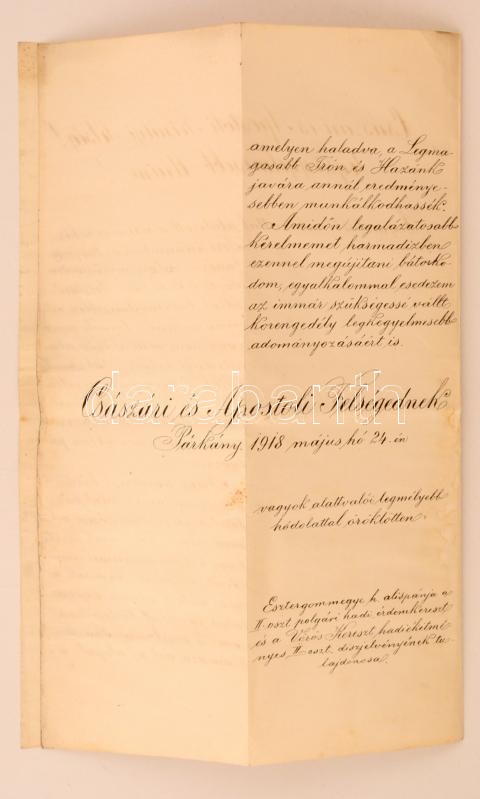 amelyen haladva, a Legma-
gasabb Trón és Hazánk
javára annál eredménye-
sebben munkálkodhassék.
Amidőn legalázatosabb
kérelmemet harmadizben
ezennel megújitani bátorko-
dom, egyalkalommal esedezem
az immár szükségessé vállt
körengedély legkegyelmesebb
adományozásáért is.
Császári és Apostoli Felségednek
Párkány 1918 május hó 24.-én
vagyok alattvalói legmélyebb
hódolattal öröklötten.
Esztergommegye h. alispánja a
II. oszt. polgári hadi érdemkereszt
és a Vörös Kereszt hadiékitmé-
nyes II. oszt. diszjelvényének tu-
lajdonosa.
darabanth